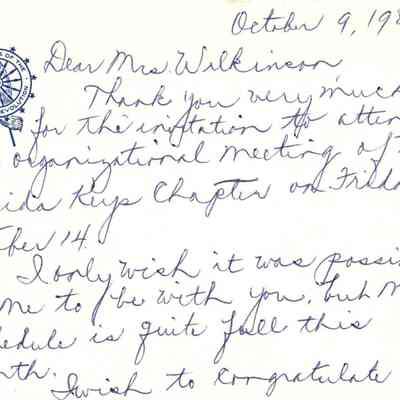 October 9, 198
S OF THE
REVOLUTION
Dear Mrs. Wilkinson
Thank you very much
for the invitation to atten
organizational meeting of
ida Keys Chapter on Frida
ber 14.
I only wish it was possi
me to be with you, but m
edule is quite full this
nth.
I wish to congratulate